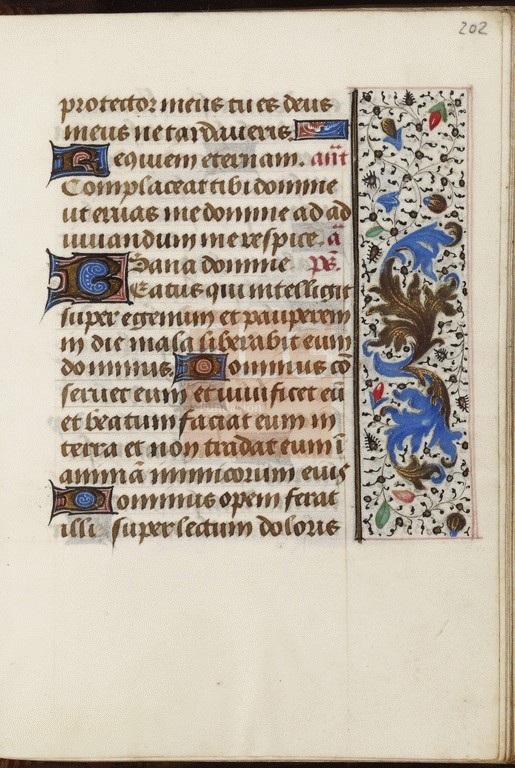 202
protector meus tu es deus
meus ne tardaveris.
Requiem eternam. ant
Complaceat tibi domine
ut eruas me domine ad ad
iuuandum me respice. a
Sana domine. ps.
Beatus qui intelligit
super egenum et pauperem
in die mala liberabit eum
dominus. Dominus co
seruet eum et viuificet eu
et beatum faciat eum in
terra et non tradat eum i
animā inimicorum eius
Dominus opem ferat
illi super lectum doloris